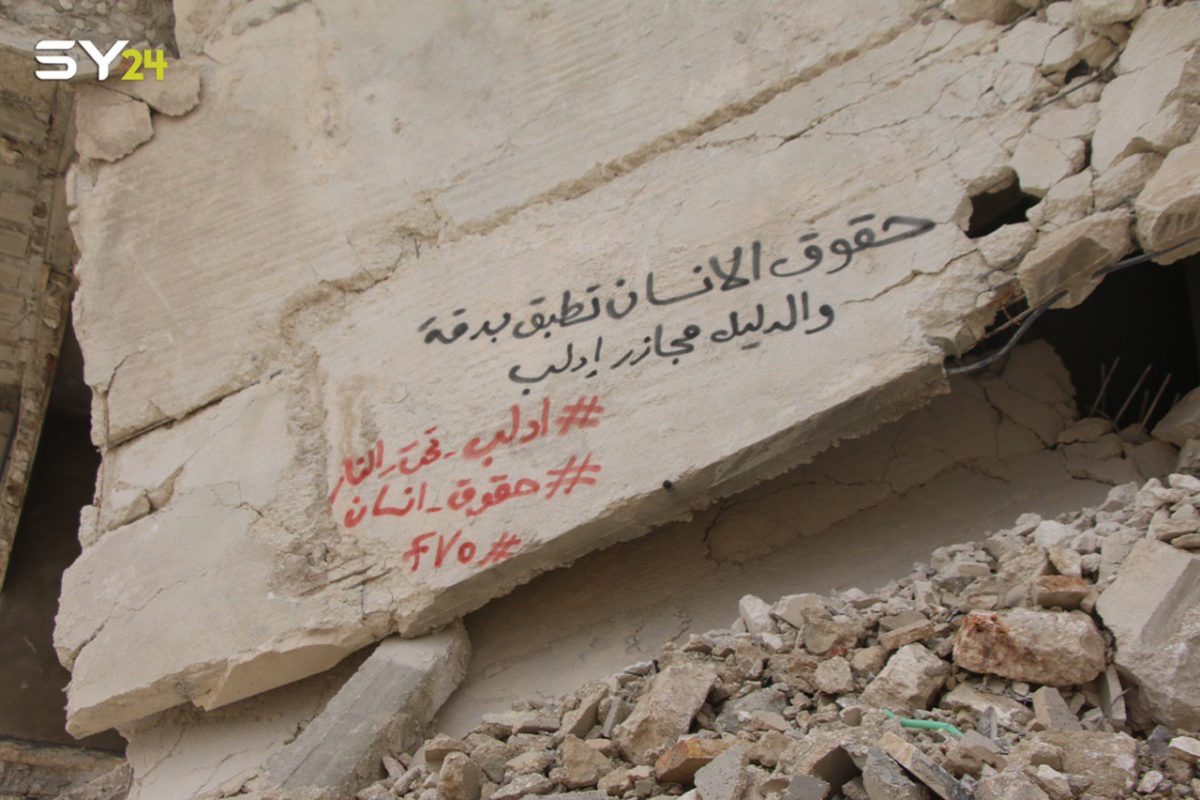 SY24
حقوق الانسان تطبق بدقة
والدليل مجازر إدلب
#ادلب_تحت_النار
#حقوق_انسان
#٤٧٥